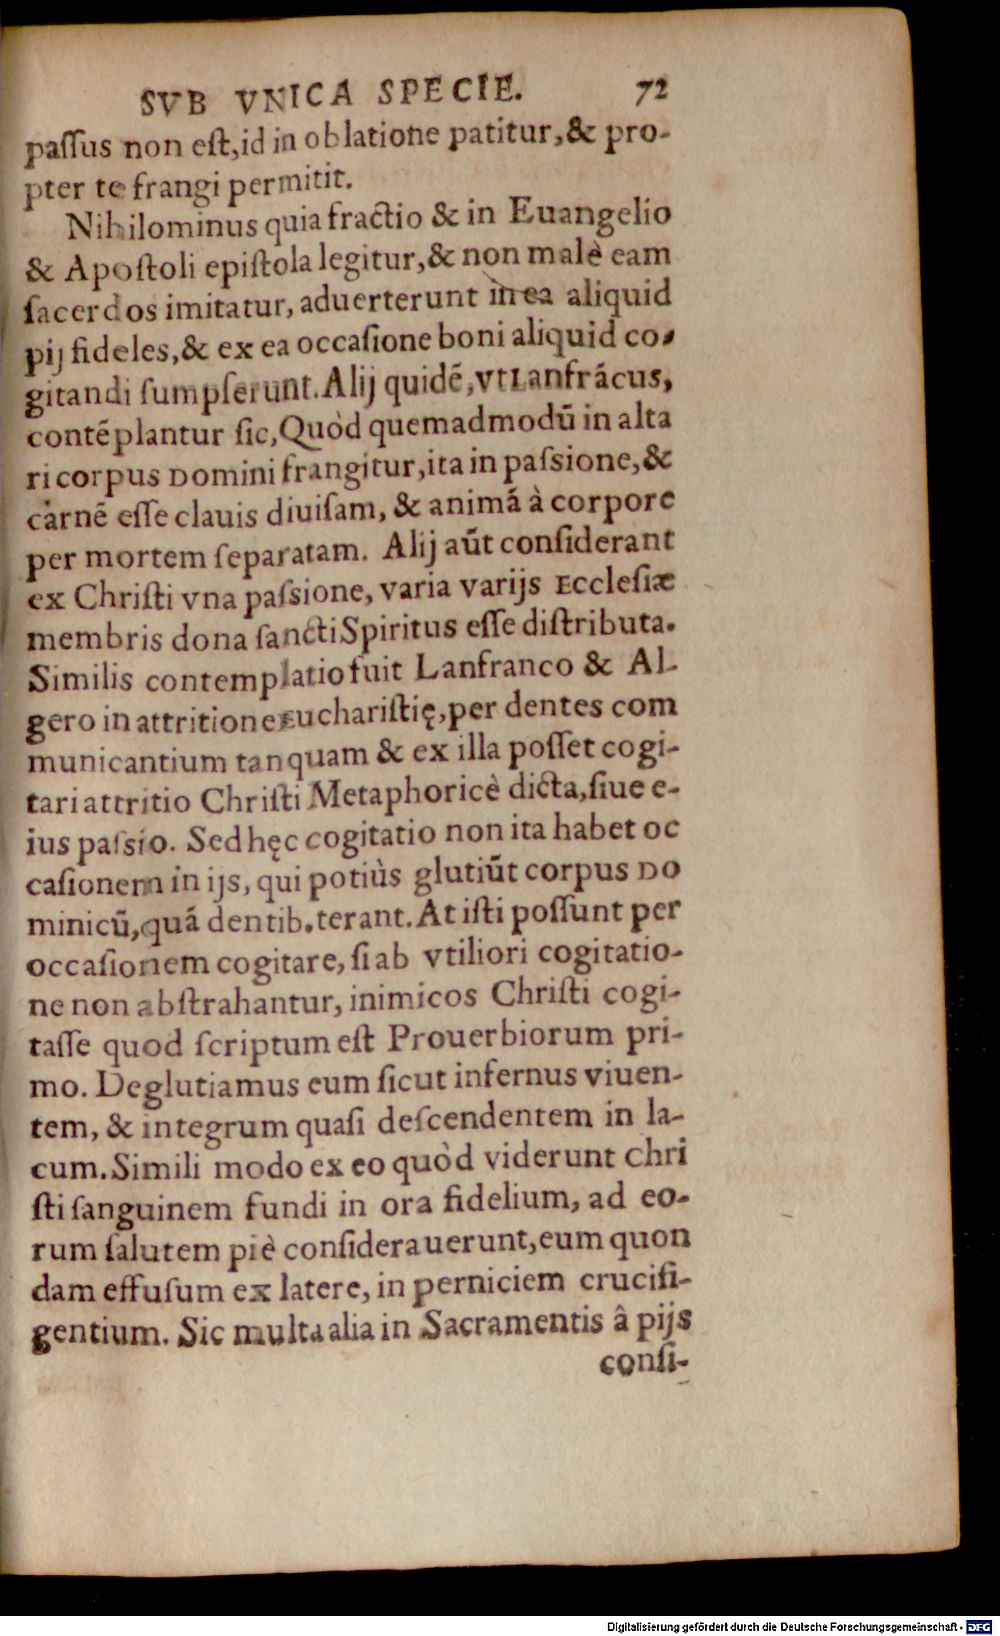 SVB VNICA SPECIE. 72
paſſus non eſt,id in oblatione patitur,& pro-
pter te frangi permitit.
Nihilominus quia fractio & in Euangelio
& Apoſtoli epiſtola legitur,& non malè eam
ſacerdos imitatur, aduerterunt in ea aliquid
pij fideles,& ex ea occaſione boni aliquid co-
gitandi ſumpſerunt. Alij quidẽ, vt Lanfrácus,
contẽplantur ſic, Quòd quemadmodũ in alta
ri corpus Domini frangitur, ita in paſsione,&
carnẽ eſſe clauis diuiſam, & animã à corpore
per mortem ſeparatam. Alij aũt conſiderant
ex Chriſti vna paſsione, varia varijs Eccleſiæ
membris dona ſancti Spiritus eſſe diſtributa.
Similis contemplatio fuit Lanfranco & Al-
gero in attritione Euchariſtię, per dentes com
municantium tanquam & ex illa poſſet cogi-
tari attritio Chriſti Metaphoricè dicta, ſiue e-
ius paſsio. Sed hęc cogitatio non ita habet oc
caſionem in ijs, qui potiùs glutiũt corpus Do
minicũ, quã dentib. terant. At iſti poſſunt per
occaſionem cogitare, ſi ab vtiliori cogitatio-
ne non abſtrahantur, inimicos Chriſti cogi-
taſſe quod ſcriptum eſt Prouerbiorum pri-
mo. Deglutiamus eum ſicut infernus viuen-
tem, & integrum quaſi deſcendentem in la-
cum. Simili modo ex eo quòd viderunt chri
ſti ſanguinem fundi in ora fidelium, ad eo-
rum ſalutem piè conſiderauerunt, eum quon
dam effuſum ex latere, in perniciem crucifi-
gentium. Sic multa alia in Sacramentis â pijs
conſi-
Digitalisierung gefördert durch die Deutsche Forschungsgemeinschaft - DFG